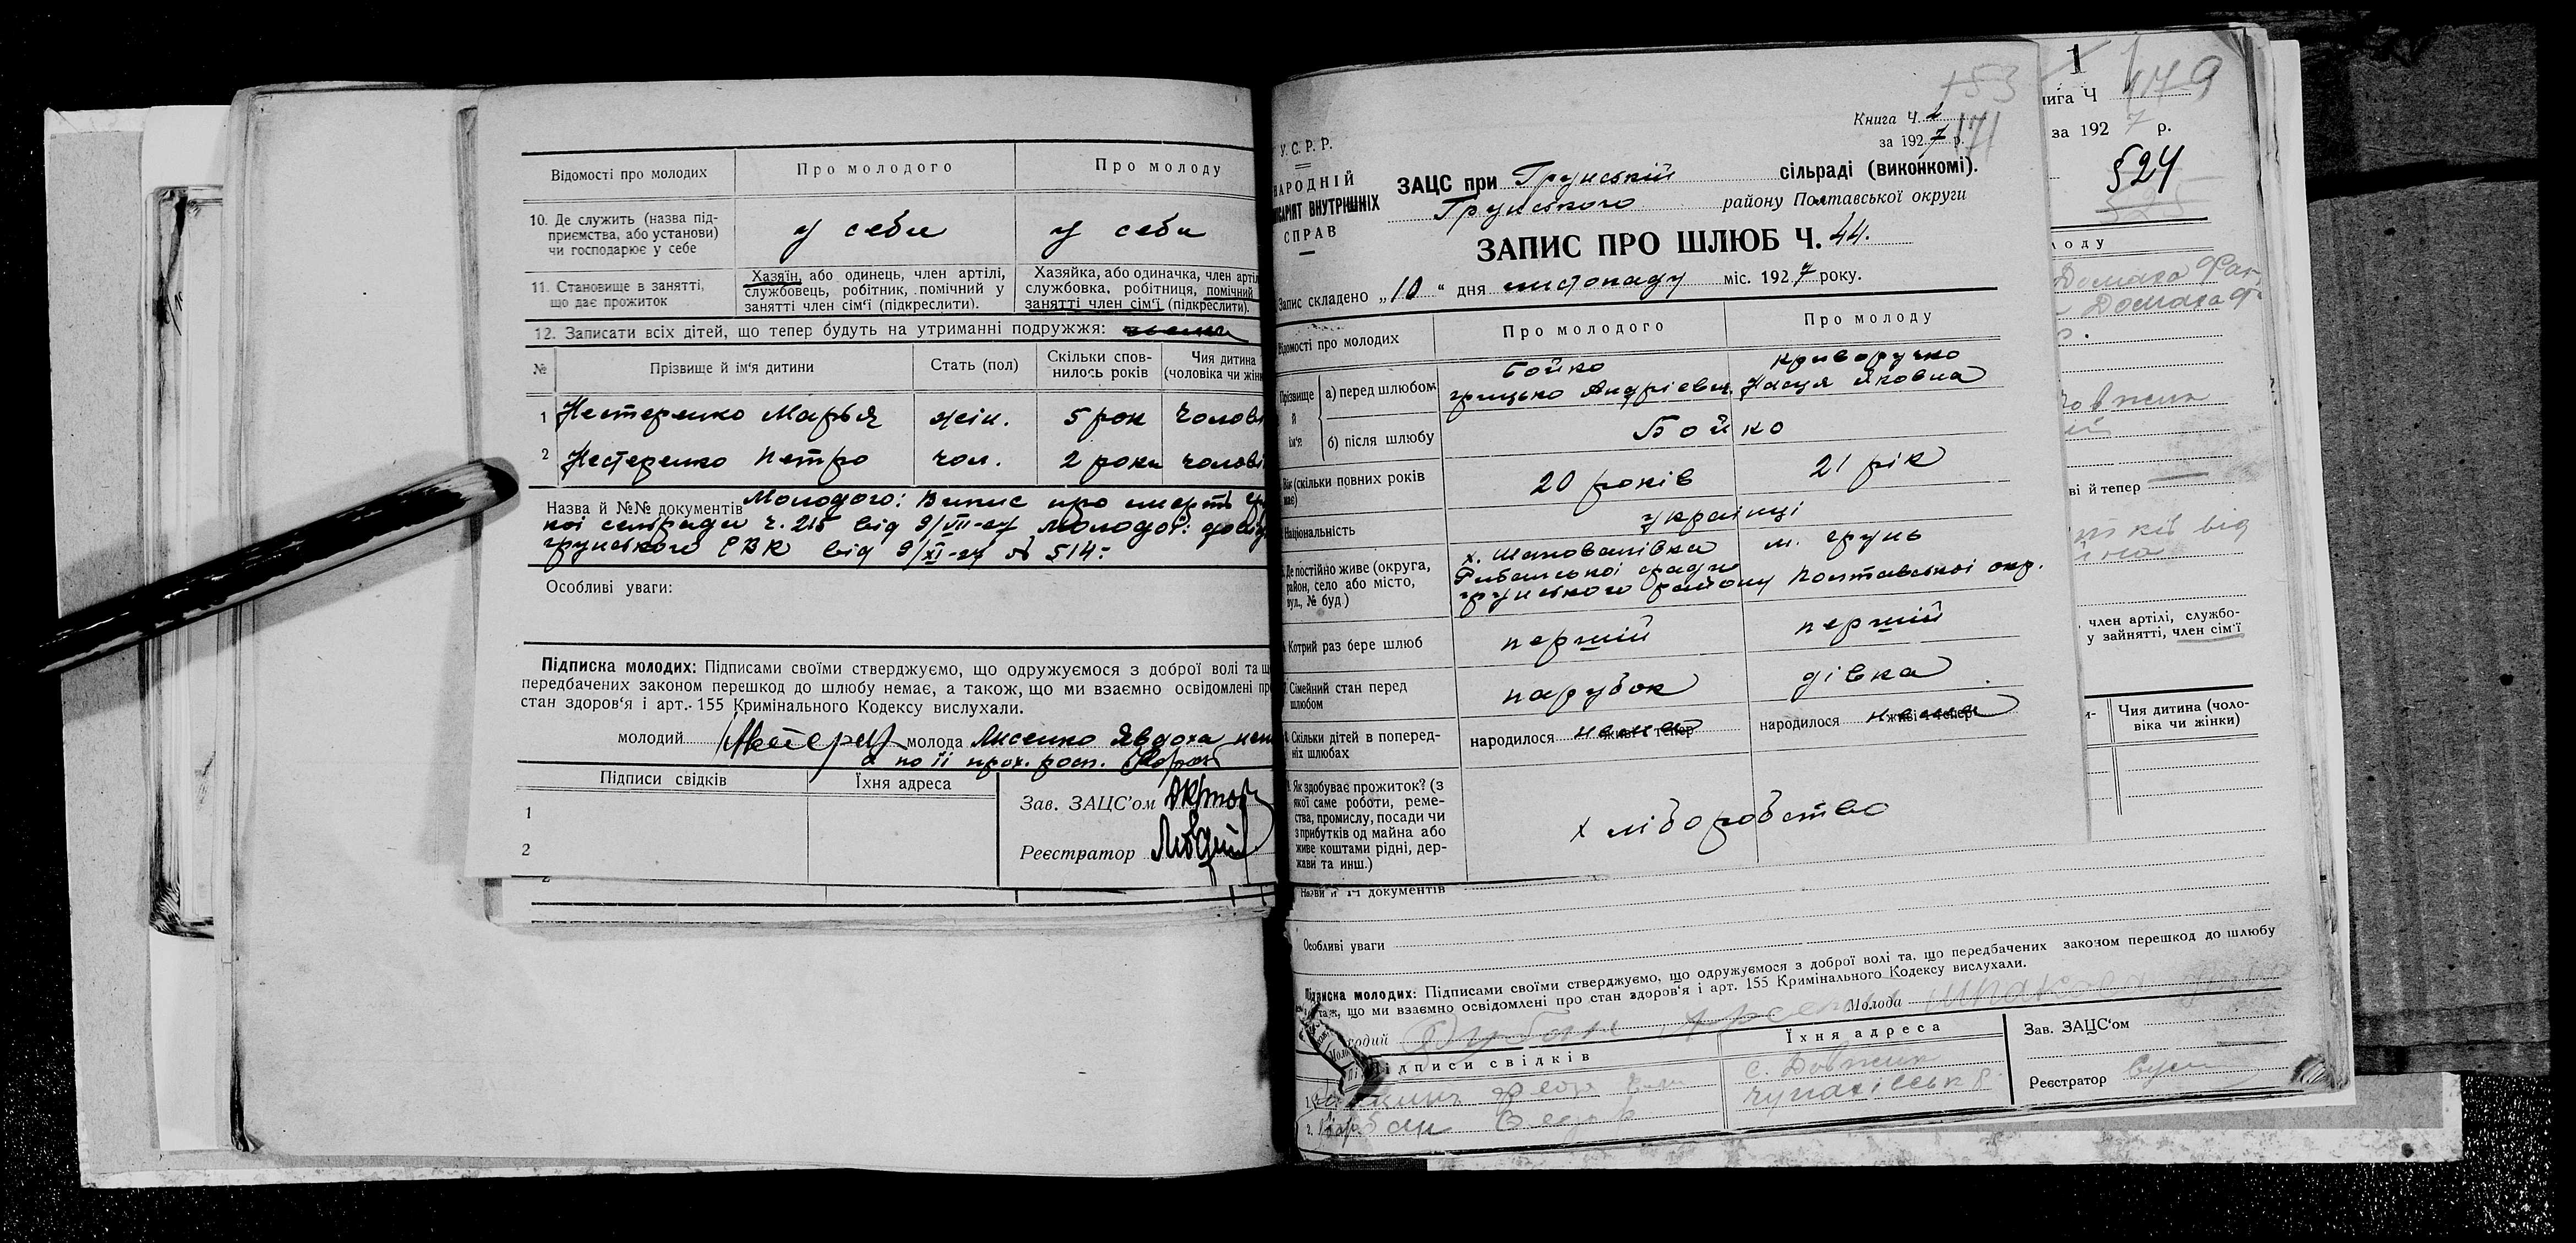 Відомості про молодих
Про молодого
Про молоду
10. Де служить (назва під-
приємства, або установи)
чи господарює у себе
у себе
у себе
11. Становище в занятті,
що дає прожиток
Хазяїн, або одинець, член артілі,
службовець, робітник, помічний у
занятті член сім'ї (підкреслити).
Хазяйка, або одиначка, член артіл
службовка, робітниця, помічний
занятті член сім'ї (підкреслити).
12. Записати всіх дітей, що тепер будуть на утриманні подружжя:
№
Прізвище й ім'я дитини
Стать (пол)
Скільки спов-
нилось років
Чия дитина
(чоловіка чи жін
1 Нестеренко Марья жін. 5 рок чолові
2 Нестеренко Петро чол. 2 роки чолові
Назва й №№ документів Молодого: Випис про смерть
кої сельради ч. 215 від 9/VII-27 Молодої:
грунського РВК від 9/XI-27 № 514:
Особливі уваги:
Підписка молодих: Підписами своїми стверджуємо, що одружуємося з доброї волі та щ
передбачених законом перешкод до шлюбу немає, а також, що ми взаємно освідомлені пр
стан здоров'я і арт. 155 Кримінального Кодексу вислухали.
молодий молода Лисенко Явдоха
а по її прох. росп.
Підписи свідків
Їхня адреса
Зав. ЗАЦС'ом
1
2
Реєстратор
153
Книга Ч. 2
за 1927 р.
171
У.С.Р.Р.
НАРОДНІЙ
ІСАРІЯТ ВНУТРІШНІХ
СПРАВ
ЗАЦС при Грунській сільраді (виконкомі).
Грунського району Полтавської округи
ЗАПИС ПРО ШЛЮБ Ч. 44.
Запис складено „10“ дня листопаду міс. 1927 року.
Відомості про молодих
Про молодого
Про молоду
Прізвище
й
ім'я
а) перед шлюбом
Бойко
Грицько Андрієвич
Криворучко
Настя Яковна
б) після шлюбу
Бойко
Вік (скільки повних років
має)
20 років
21 рік
Національність
українці
Де постійно живе (округа,
район, село або місто,
вул., № буд)
х. Шаповалівка
м. Грунь
Рибальської ради
грунського району Полтавської окр.
Котрий раз бере шлюб
першій
першій
Сімейний стан перед
шлюбом
парубок
дівка
Скільки дітей в поперед-
ніх шлюбах
народилося нема живі тепер
народилося нема живі тепер
Як здобуває прожиток? (з
якої саме роботи, реме-
ства, промислу, посади чи
з прибутків од майна або
живе коштами рідні, дер-
жави та инш.)
хліборобство
1
179
нига Ч
за 1927 р.
§24
лоду
Домаха
Домаха
ві й тепер
від
член артілі, службо-
у зайнятті, член сім'ї
Чия дитина (чоло-
віка чи жінки)
документів
Особливі уваги
Підписка молодих: Підписами своїми стверджуємо, що одружуємося з доброї волі та, що передбачених законом перешкод до шлюбу
таж, що ми взаємно освідомлені про стан здоров'я і арт. 155 Кримінального Кодексу вислухали.
одий
Молода
ідписи свідків
Їхня адреса
Зав. ЗАЦС'ом
с. Довжик
1.
Реєстратор
2.